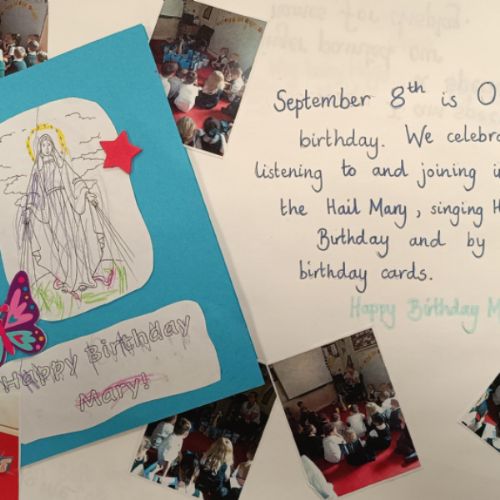 Happy Birthday
Mary!
September 8th is O
birthday. We celebra
listening to and joining i
the Hail Mary, singing H
Birthday and by
birthday cards.
Happy Birthday M